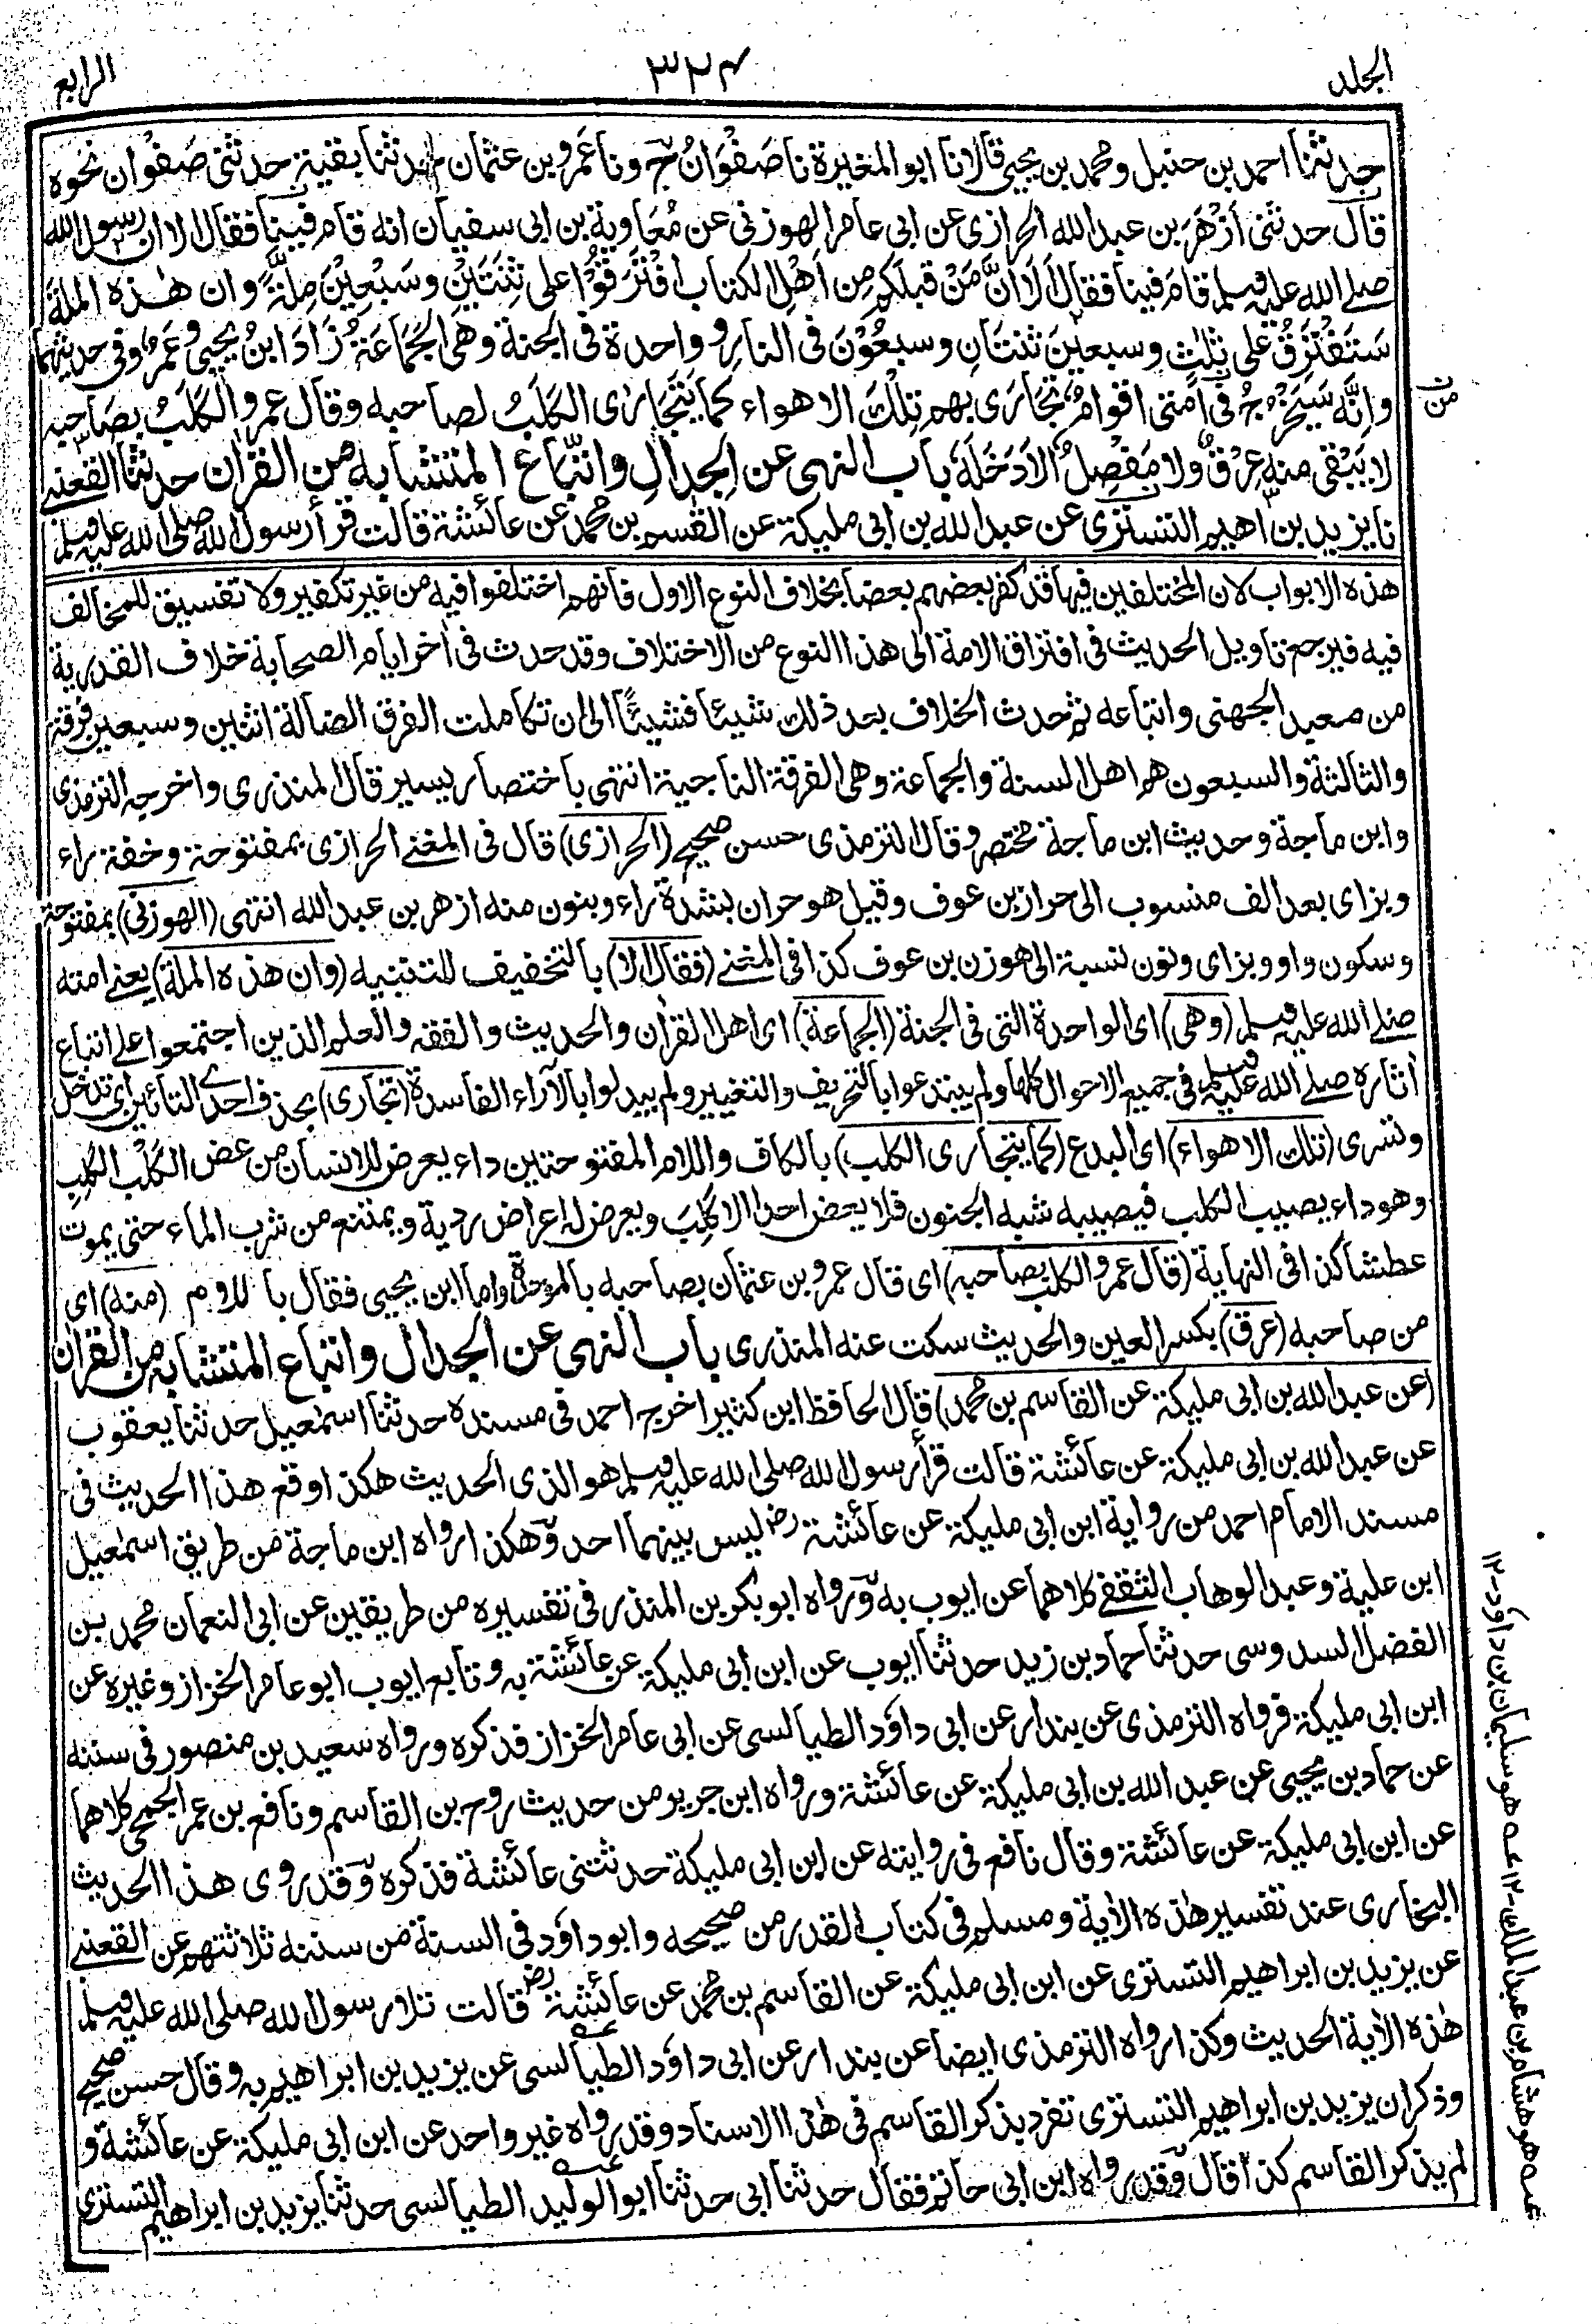 الجلد
٣٢٤
الرابع
حدثنا احمد بن حنبل ومحمد بن يحيى قالا نا ابو المغيرة نا صَفْوَانُ ح ونا عَمرو بن عثمان حدثنا بقية حدثنى صَفْوان نحوه
قال حدثنى اَزْهَر بن عبد الله الحرازى عن ابى عامر الهوزنى عن مُعَاوية بن ابى سفيان انه قام فينا فقال الا ان رسول الله
صلى الله عليه وسلم قامَ فينا فقال اَلَا اِنَّ مَنْ قبلَكم مِن اَهْلِ الكتاب افْتَرَقُوْا على ثِنْتَيْنِ وسَبْعِيْنَ مِلَّةً وان هٰذه الملةَ
سَتَفْتَرِقُ على ثلٰثٍ وسبعينَ ثنتَانِ وسبعُوْنَ فى النارِ وواحدة فى الجنة وهى الجَمَاعَةُ زَادَ ابنُ يحيى وعَمرٌو فى حديثهما
وانَّه سَيَخْرُجُ فى اُمتى اقوامٌ تجَارَى بهم تِلْكَ الاهواء كما يَتَجَارَى الكَلَبُ لصاحبه وقال عمرو الكَلَبُ بصَاحبه
لا يَبْقَى منه عِرْقٌ ولا مَفْصِلٌ الا دَخَلَهُ باب النهى عن الجدالِ واتّباع المتشابه من القرآن حدثنا القعنبى
نا يزيد بن ابراهيم التسترى عن عبد الله بن ابى مليكة عن القٰسم بن محمد عن عائشة قالت قرأ رسول الله صلى الله عليه وسلم
هذه الابواب لان المختلفين فيها قد كفر بعضهم بعضا بخلاف النوع الاول فانهم اختلفوا فيه من غير تكفير ولا تفسيق للمخالف
فيه فيرجع تاويل الحديث فى افتراق الامة الى هذا النوع من الاختلاف وقد حدث فى اٰخر ايام الصحابة خلاف القدرية
من معبد الجهنى واتباعه ثم حدث الخلاف بعد ذلك شيئا فشيئًا الى ان تكاملت الفرق الضالة اثنين وسبعين فرقة
والثالثة والسبعون هم اهل السنة والجماعة وهى الفرقة الناجية انتهى باختصار يسير قال المنذرى واخرجه الترمذى
وابن ماجة وحديث ابن ماجة مختصر وقال الترمذى حسن صحيح (الحرازى) قال فى المغنى الحرازى بمفتوحة وخفة راء
وبزاى بعد الف منسوب الى حراز بن عوف وقيل هو حران بشدة راء وبنون منه ازهر بن عبد الله انتهى (الهوزنى) بمفتوحة
وسكون واو وبزاى ونون نسبة الى هوزن بن عوف كذا فى المغنى (فقال الا) بالتخفيف للتنبيه (وان هذه الملة) يعنى امته
صلى الله عليه وسلم (وهى) اى الواحدة التى فى الجنة (الجماعة) اى اهل القراٰن والحديث والفقه والعلم الذين اجتمعوا على اتباع
اٰثاره صلى الله عليه وسلم فى جميع الاحوال كلها ولم يبتدعوا بالتحريف والتغيير ولم يبدلوا بالآراء الفاسدة (تجارى) بحذف احدى التائين اى تدخل
وتسرى (تلك الاهواء) اى البدع (كما يتجارى الكلب) بالكاف واللام المفتوحتين داء يعرض للانسان من عض الكَلْب الكَلِبِ
وهو داء يصيب الكلب فيصيبه شبه الجنون فلا يعض احدا الا كلِبَ ويعرض له اعراض ردية ويمتنع من شرب الماء حتى يموت
عطشا كذا فى النهاية (قال عمرو الكلب بصاحبه) اى قال عمرو بن عثمان بصاحبه بالموحدة واما ابن يحيى فقال باللام (منه) اى
من صاحبه (عرق) بكسر العين والحديث سكت عنه المنذرى باب النهى عن الجدال واتباع المتشابه من القراٰن
(عن عبد الله بن ابى مليكة عن القاسم بن محمد) قال الحافظ ابن كثير اخرجه احمد فى مسنده حدثنا اسمٰعيل حدثنا يعقوب
عن عبد الله بن ابى مليكة عن عائشة قالت قرأ رسول الله صلى الله عليه وسلم هو الذى الحديث هكذا وقع هذا الحديث فى
مسند الامام احمد من رواية ابن ابى مليكة عن عائشة رض ليس بينهما احد وهكذا رواه ابن ماجة من طريق اسمٰعيل
ابن علية وعبد الوهاب الثقفى كلاهما عن ايوب به ورواه ابو بكر بن المنذر فى تفسيره من طريقين عن ابى النعمان محمد بن
الفضل السدوسى حدثنا حماد بن زيد حدثنا ايوب عن ابن ابى مليكة عن عائشة به وتابع ايوب ابو عامر الخزاز وغيره عن
ابن ابى مليكة فرواه الترمذى عن بندار عن ابى داؤد الطيالسى عن ابى عامر الخزاز فذكره ورواه سعيد بن منصور فى سننه
عن حماد بن يحيى عن عبد الله بن ابى مليكة عن عائشة ورواه ابن جرير من حديث روح بن القاسم ونافع بن عمر الجمحى كلاهما
عن ابن ابى مليكة عن عائشة وقال نافع فى روايته عن ابن ابى مليكة حدثتنى عائشة فذكره وقد روى هذا الحديث
البخارى عند تفسير هٰذه الاٰية ومسلم فى كتاب القدر من صحيحه وابو داؤد فى السنة من سننه ثلاثتهم عن القعنبى
عن يزيد بن ابراهيم التسترى عن ابن ابى مليكة عن القاسم بن محمد عن عائشة رض قالت تلا رسول الله صلى الله عليه وسلم
هٰذه الاٰية الحديث وكذا رواه الترمذى ايضا عن بندار عن ابى داؤد الطيالسى عن يزيد بن ابراهيم به وقال حسن صحيح
وذكر ان يزيد بن ابراهيم التسترى تفرد بذكر القاسم فى هٰذا الاسناد وقد رواه غير واحد عن ابن ابى مليكة عن عائشة و
لم يذكر القاسم كذا قال وقد رواه ابن ابى حاتم فقال حدثنا ابى حدثنا ابو الوليد الطيالسى حدثنا يزيد بن ابراهيم التسترى
من
عه هو هشام بن عبد الملك ١٢ عه هو سليمان بن داؤد ١٢